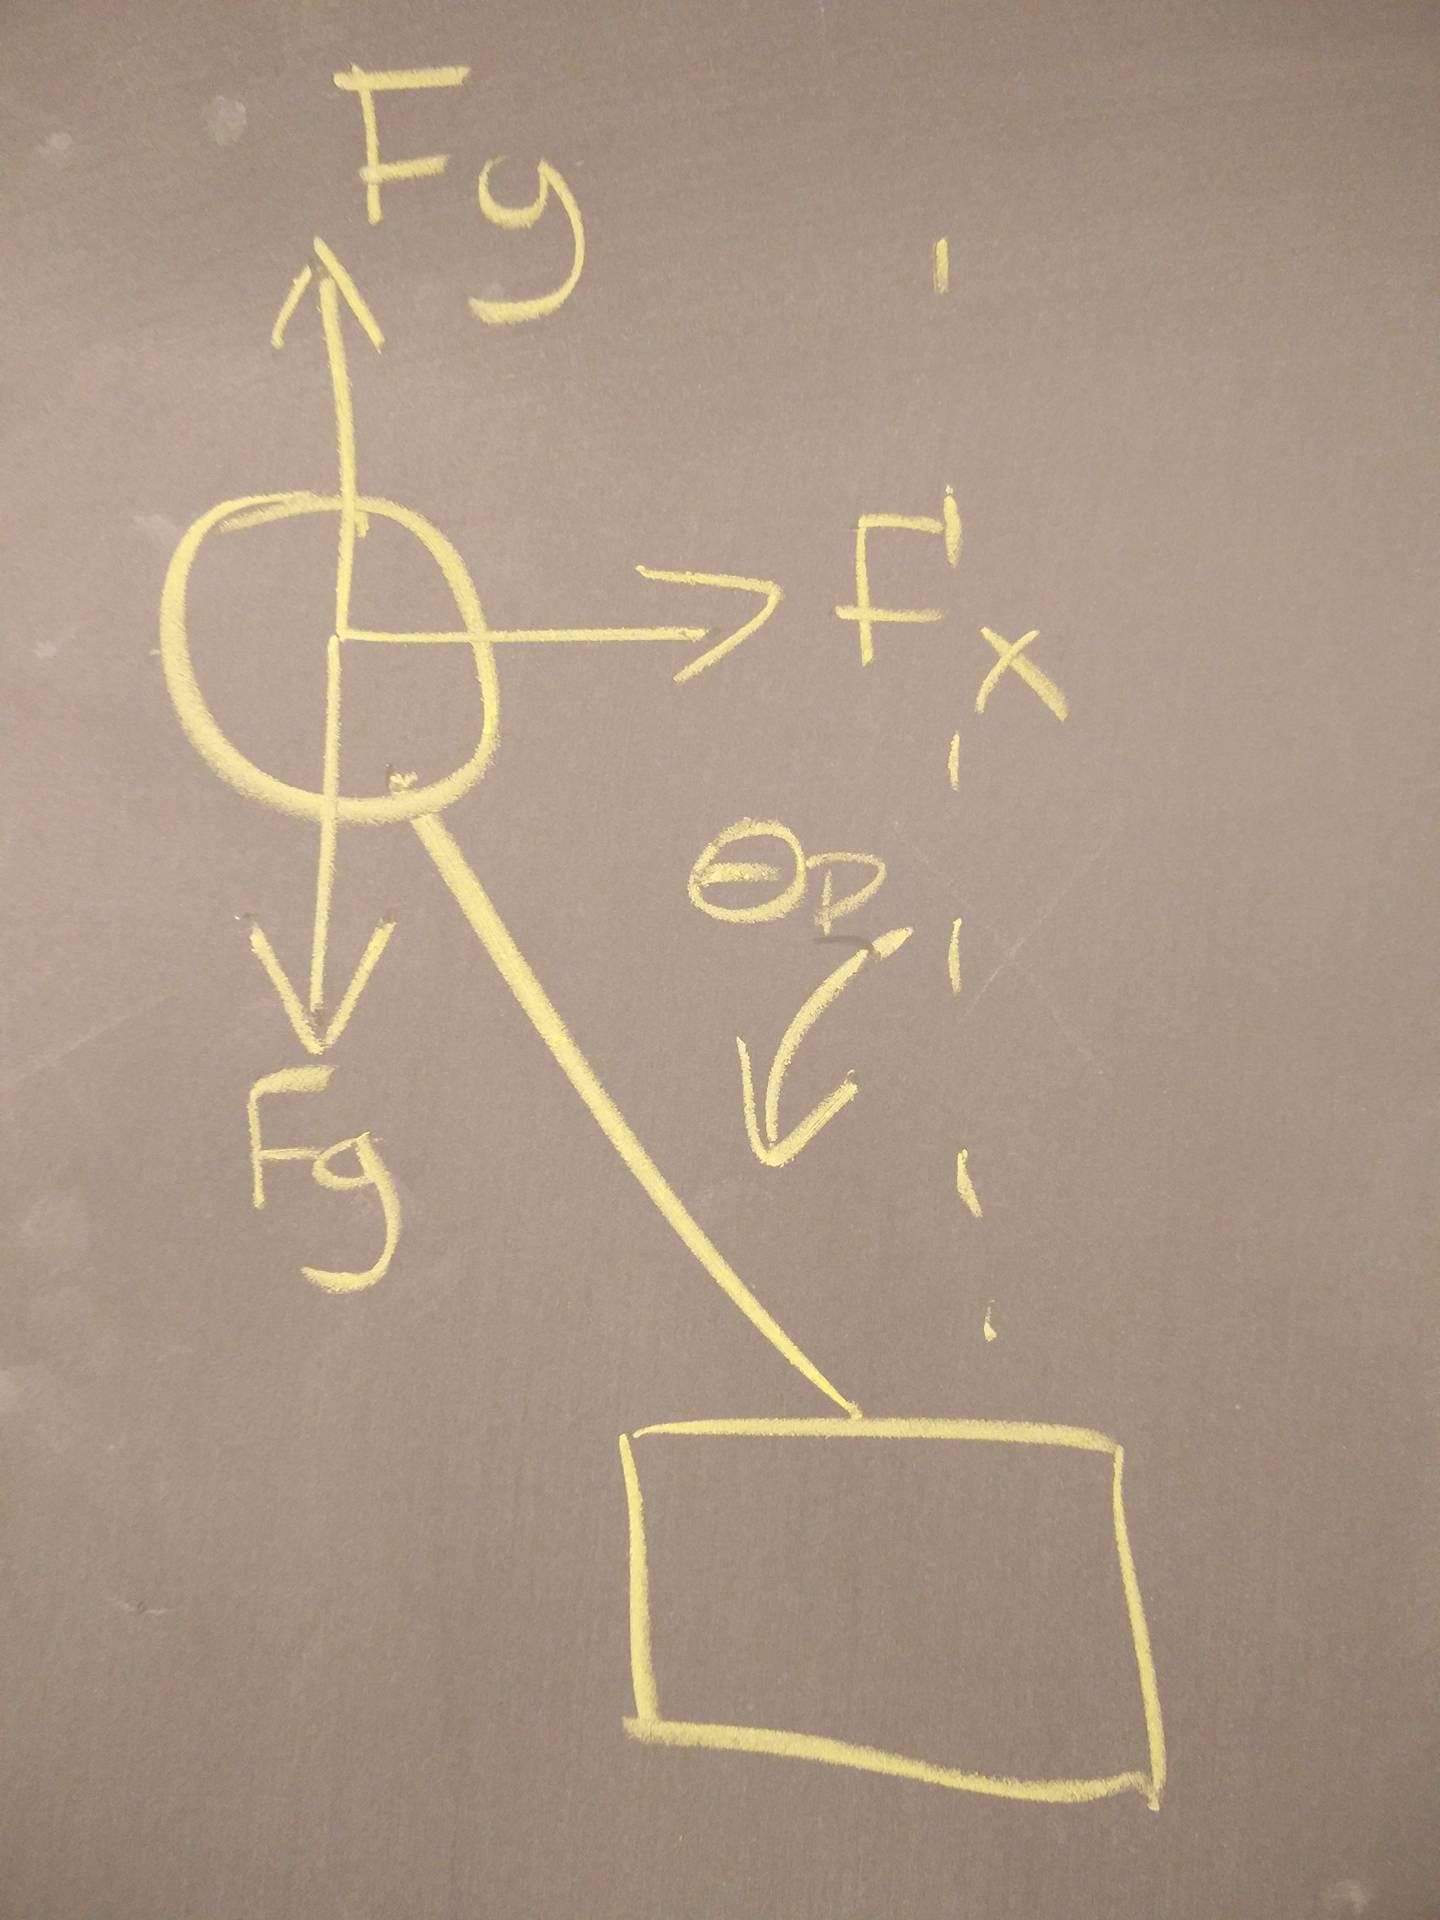 Fg
Fx
θp
Fg